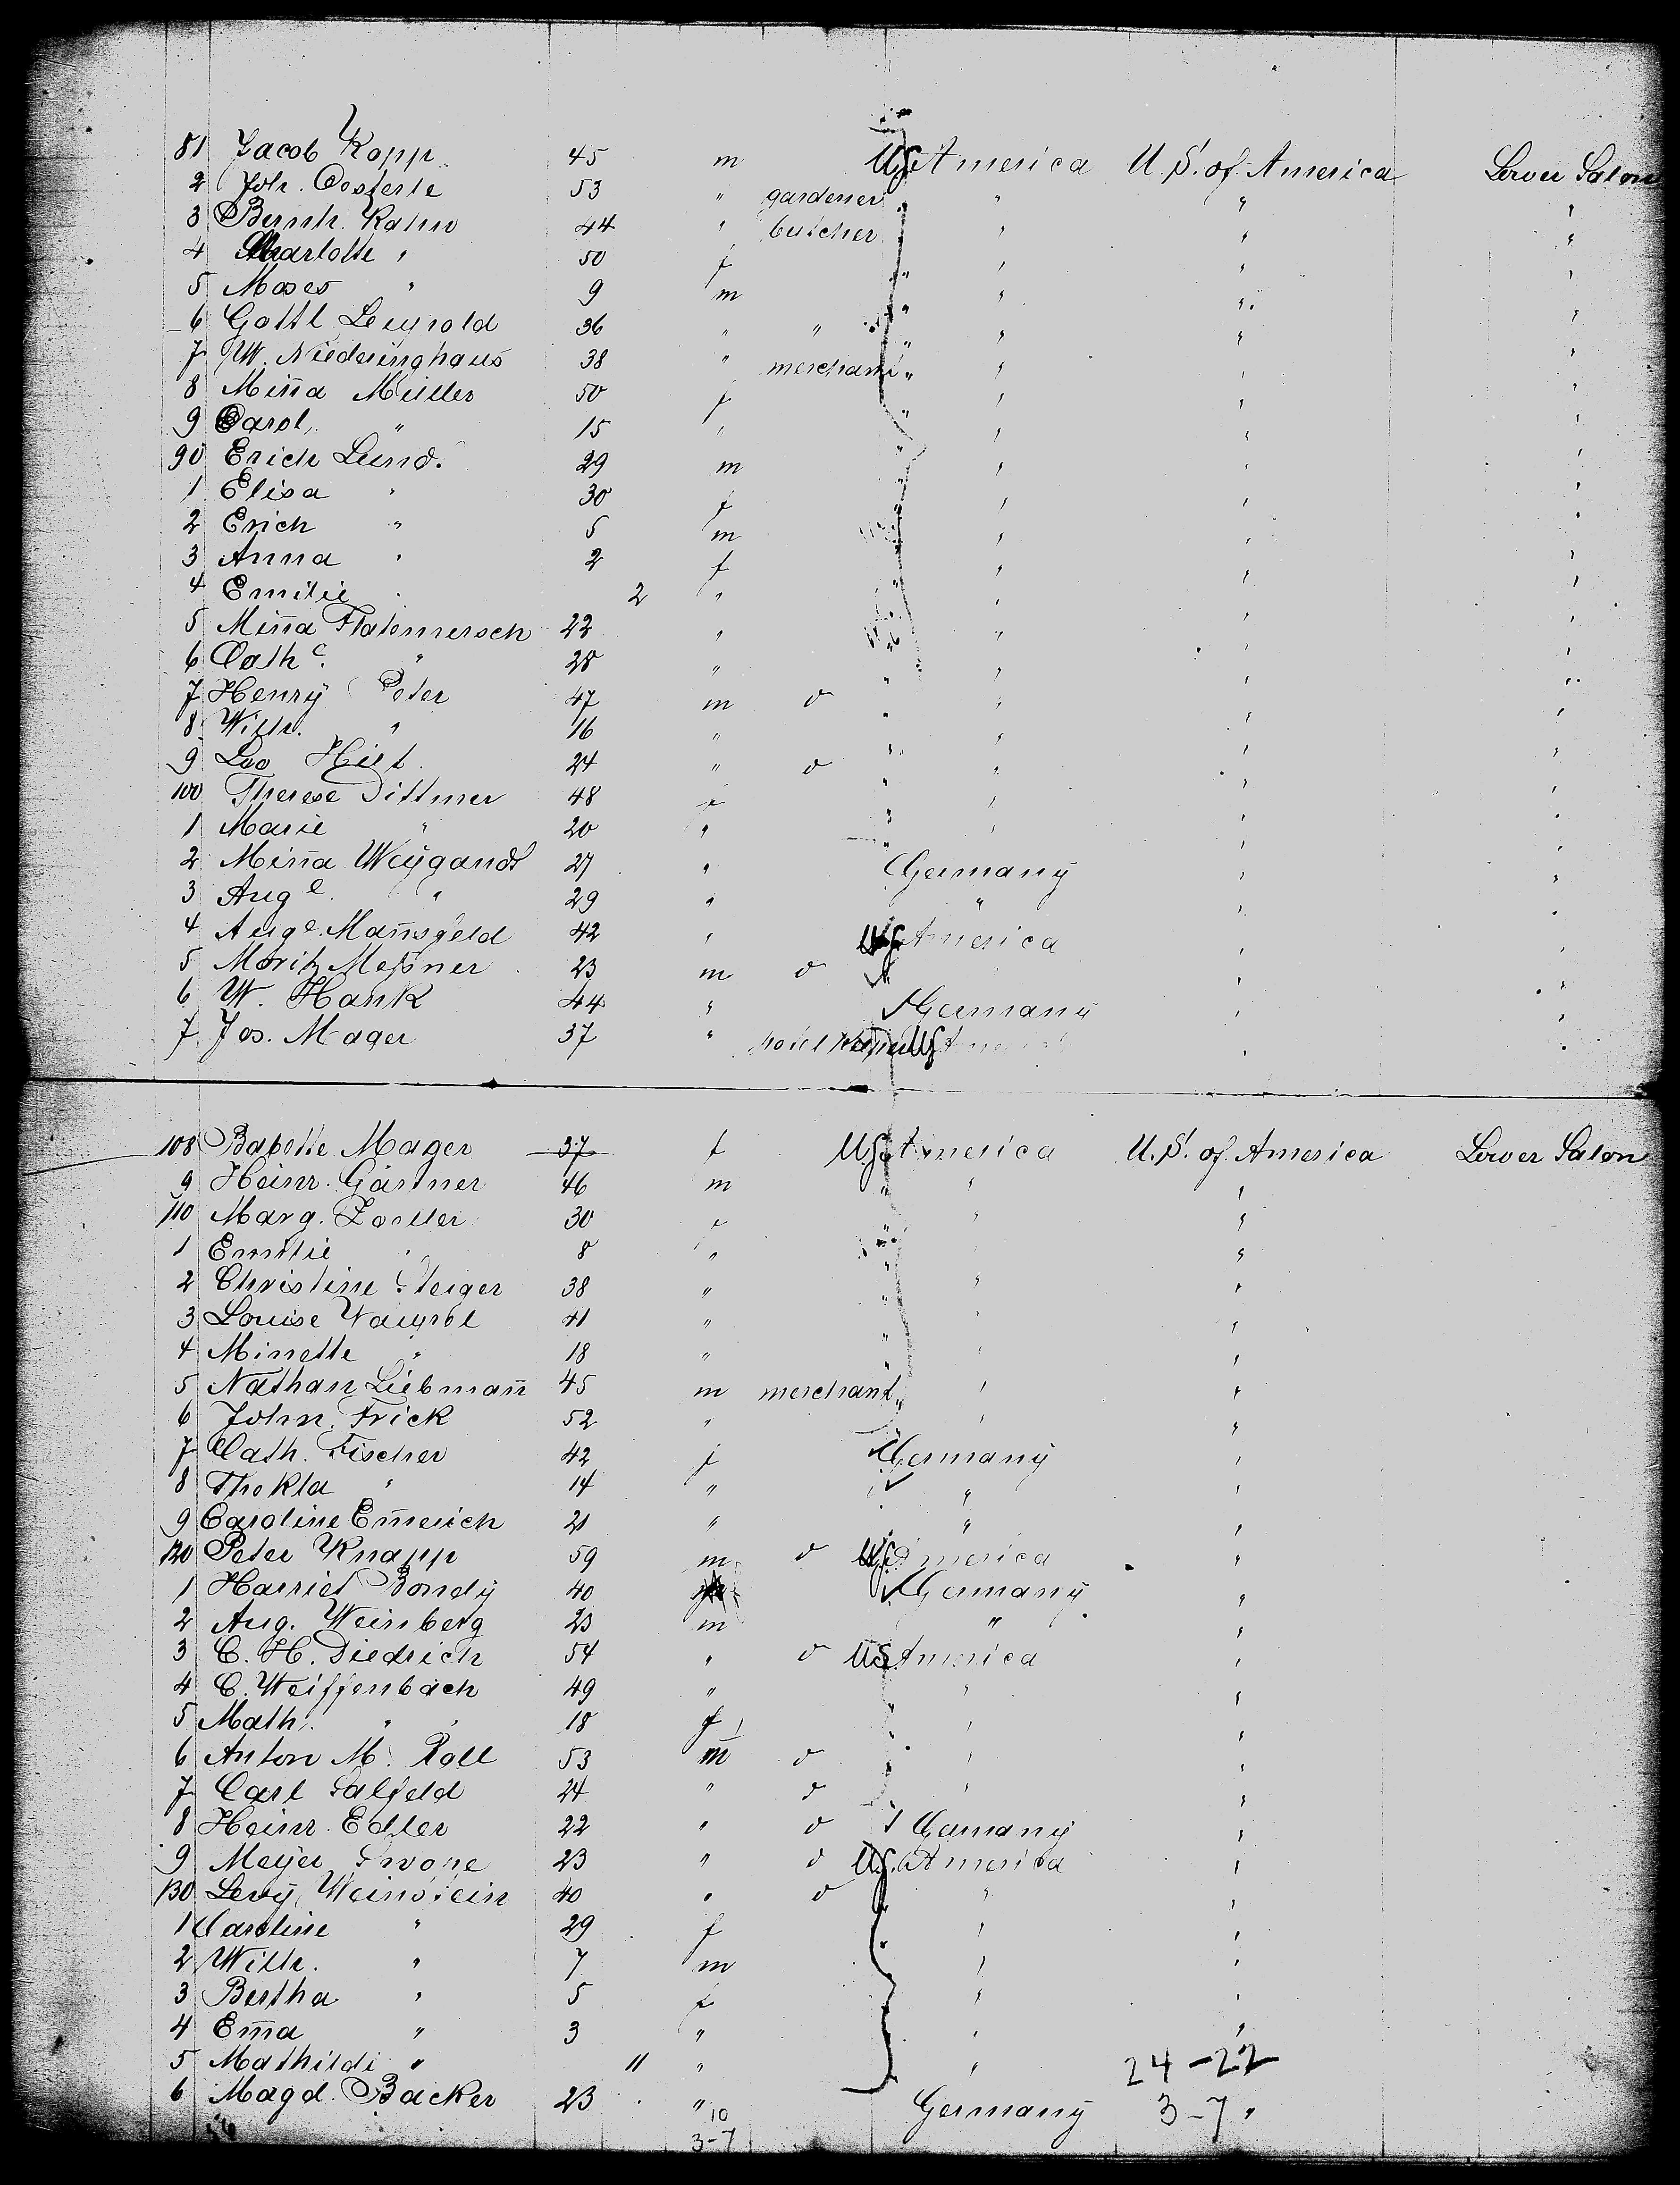 81 Jacob Kopp 45 m US America U.S. of America Lower Salon
2 Joh. Oosterle 53 " gardener " " "
3 Bernh. Kahn 44 " butcher " " "
4 Charlotte " 50 f " " " "
5 Moses " 9 m " " " "
6 Gottl. Leypold 36 " " " " " "
7 W. Niederinghaus 38 " merchant " " " "
8 Miña Müller 50 f " " "
9 Carol. " 15 " " " " "
90 Erich Lund. 29 m " " " "
1 Elisa " 30 f " " "
2 Erich " 5 m " " "
3 Anna " 2 f " " "
4 Emilie " 2 " " " " "
5 Miña Flatemersch 22 " " " "
6 Cath e. " 28 " " " " "
7 Henry Peter 47 m o " " " "
8 Wilh. " 16 " " " " "
9 Leo Hiel 24 " o " " " "
100 Therese Dittmer 48 f " " " "
1 Marie " 20 " " " " "
2 Miña Weygandt 27 " Germany " "
3 Aug e. " 29 " " " "
4 Aug e. Mañsfeld 42 " US America " "
5 Moritz Meßner 23 m o " " "
6 W. Hank 44 " Germany " "
7 Jos. Mager 37 " hotel keeper US " "
108 Babette Mager 37 f US America U.S. of America Lower Salon
9 Heinr. Gärtner 46 m " " "
110 Marg. Zoeller 30 f " " "
1 Emilie " 8 " " " "
2 Christine Steiger 38 " " " "
3 Louise Vaupel 41 " " " "
4 Minette " 18 " " " "
5 Nathan Liebmañ 45 m merchant " " "
6 John Frick 52 " " "
7 Cath. Fischer 42 f Germany "
8 Thekla " 14 " " "
9 Caroline Em̄erich 21 " " "
120 Peter Knapp 59 m o US America "
1 Harriet Bondy 40 Germany "
2 Aug. Weinberg 23 m " "
3 C. H. Diedrich 54 " o US America "
4 C. Weiffenbach 49 " " " "
5 Math. " 18 f " "
6 Anton M. Roll 53 m o " " "
7 Carl Salfeld 24 " o " "
8 Heinr. Edler 22 " o Germany "
9 Meyer 23 " o US. America "
130 Levy Weinstein 40 " o " "
1 Caroline " 29 f " "
2 Wilh. " 7 m " "
3 Bertha " 5 f " "
4 Em̄a " 3 " " "
5 Mathilde " 11 " " 24-22
6 Magd. Backer 23 " Germany 3-7 "
10
3-7